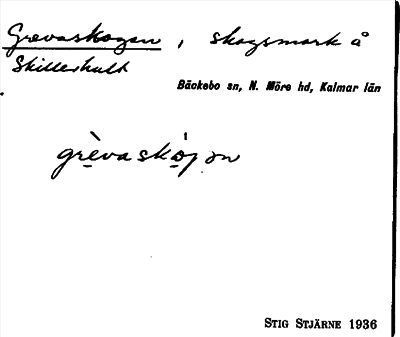 Grevaskogen, skogsmark å
Skillerhult
Bäckebo sn, N. Möre hd, Kalmar län
grèvaskò̱gən
STIG STJÄRNE 1936